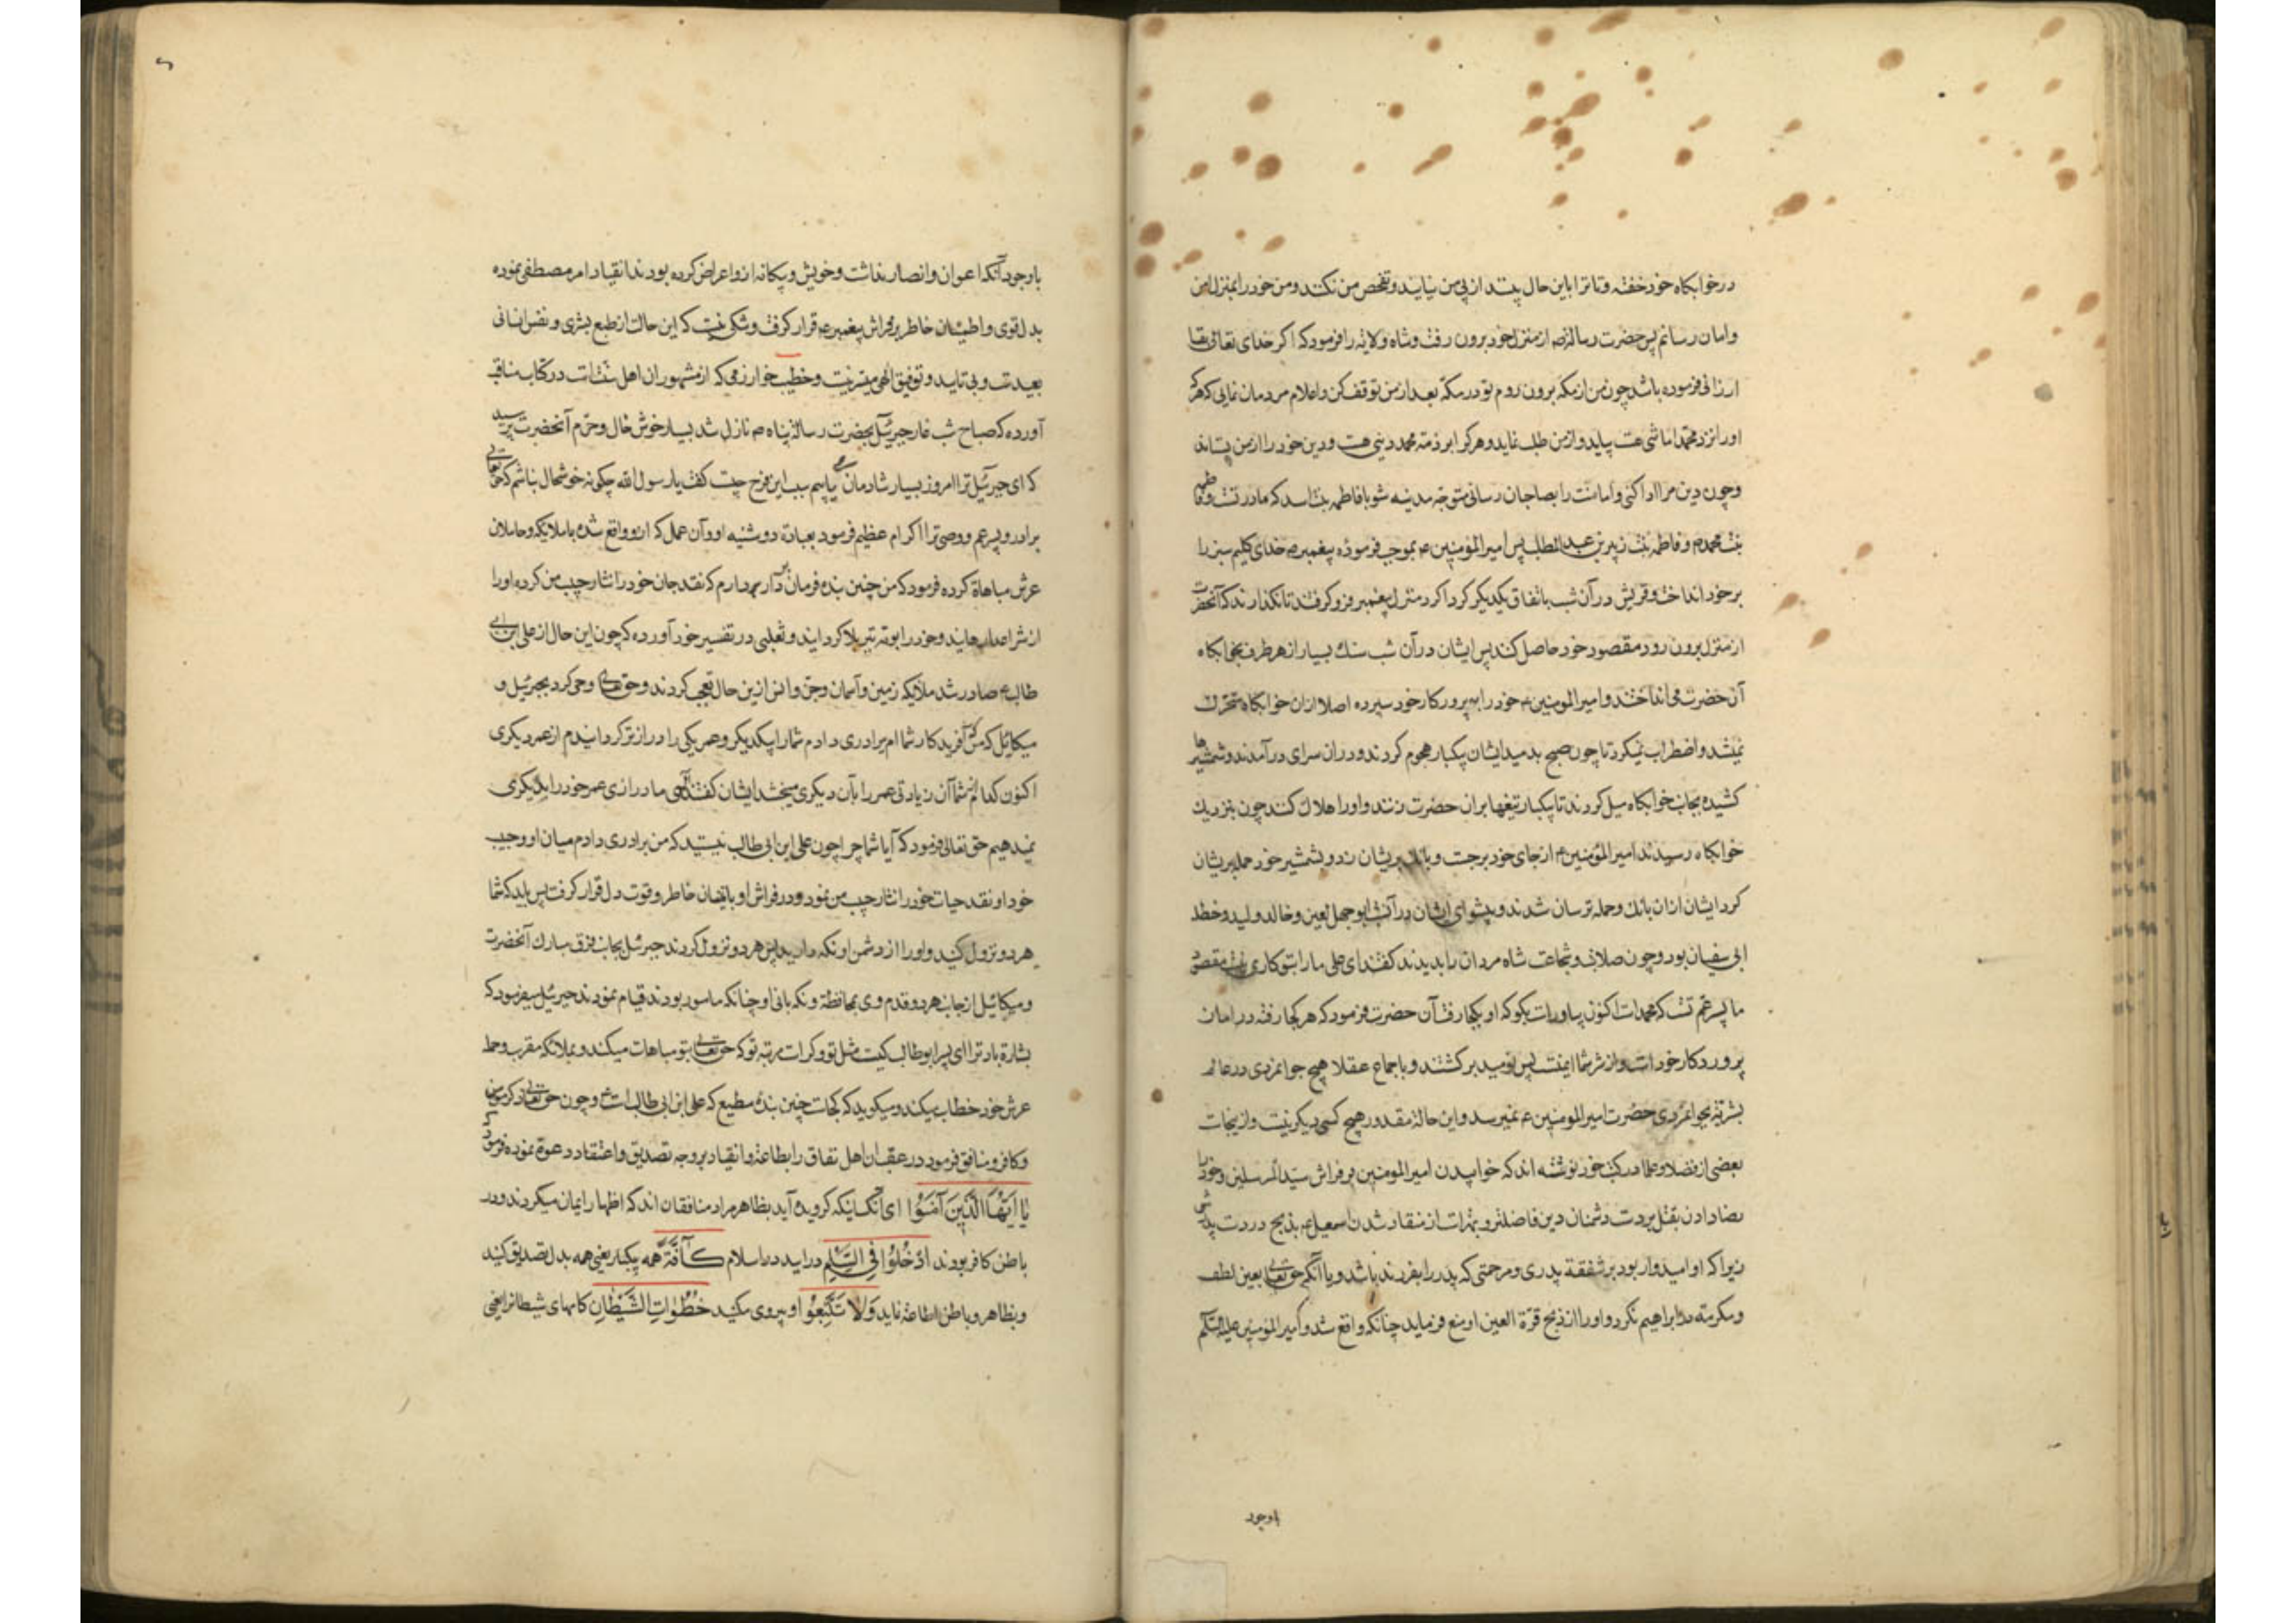 در خوابکاه خود خفته و تا ترا باین حال بینند از پی من نیایند و تفحص من نکنند و من خود را بمنزل امن
و امان رسانم پس حضرت رسالة ص از منزل خود برون رفت و شاه ولایة را فرمود که اکر خدای تعالی بقا
ارزانی فرموده باشد چون من از مکه برون روم تو در مکه بعد از من توقف کن و اعلام مردمان نمایی که هرکه
او را نزد محمد امانتی هست بیاید و از من طلب نماید و هر کرا بر ذمة محمد دینی هست و دین خود را از من بستاند
و چون دین مرا ادا کنی و امانت را بصاحبان رسانی متوجه مدینه شو با فاطمه بنت اسد که مادر تست و فاطمه
بنت محمد ص و فاطمه بنت زبیر بن عبد المطلب پس امیر المؤمنین ع بموجب فرموده پیغمبر ص خدای کلیم سبز را
بر خود انداخت و قریش در آن شب باتفاق یکدیکر کرداکرد منزل پیغمبر فرو کرفتند تا نکذارند که آنحضرت
از منزل برون رود و مقصود خود حاصل کنند پس ایشان در آن شب سنك بسیار از هر طرف بخوابکاه
آن حضرت می انداختند و امیر المومنین ع خود را به پرورکار خود سپرده اصلا ازان خوابکاه متحرك
نمیشد و اضطراب نمیکرد تا چون صبح بدمید ایشان یکبار هجوم کردند و دران سرای درآمدند و شمشیرها
کشیده بجانب خوابکاه میل کردند تا یکبار تیغها بران حضرت زنند و او را هلاك کنند چون بنزدیك
خوابکاه رسیدند امیر المؤمنین ع از جای خود برجست و بانك بریشان زد و بشمشیر خود حمله بریشان
کرد ایشان ازان بانك و حمله ترسان شدند و پیشوای ایشان در آن شب ابو جهل لعین و خالد ولید و حنظله
ابی سفیان بود و چون صلابت و شجاعت شاه مردان را بدیدند کفتند ای علی ما را بتو کاری نیست مقصود
ما پسر عم تست که محمد است اکنون بیا و راست بکو که او بکجا رفت آن حضرت فرمود که هر کجا رفته در امان
پروردکار خود است و از شر شما ایمنست پس نومید برکشتند و باجماع عقلا هیچ جوانمردی در عالم
بمرتبه جوانمردی حضرت امیر المومنین ع نمیرسد و این حالة مقدور هیچ کسی دیکر نیست و ازینجاست
بعضی از فضلا و علما در کتب خود نوشته اند که خوابیدن امیر المومنین بر فراش سید المرسلین و خود را
رضا دادن بقتل بر دست دشمنان دین فاضلتر و بهتر است از منقاد شدن اسمعیل ع بذبح در دست پدرش
زیرا که او امیدوار بود بر شفقة پدری و مرحمتی که پدر را بفرزند باشد و یا آنکه حق تعالی بعین لطف
و مکرمة در ابراهیم نکرد و او را از ذبح قرة العین او منع فرماید چنانکه واقع شد و امیر المؤمنین علیه السلم
باوجود
با وجود آنکه اعوان و انصار نداشت و خویش و بیکانه ازو اعراض کرده بودند انقیاد امر مصطفی نموده
بدل قوی و اطمینان خاطر بر فراش پیغمبر ع قرار کرفت و شکی نیست که این حالت از طبع بشری و نفس انسانی
بعید است و بی تایید و توفیق الهی میسر نیست و خطیب خوارزمی که از مشهوران اهل سنت است در کتاب مناقب
آورده که صباح شب غار جبرئیل بحضرت رسالة پناه ص نازل شد بسیار خوش حال و خرم آنحضرت پرسید
که ای جبرئیل ترا امروز بسیار شادمان می یابم سبب این فرح چیست کفت یا رسول الله چکونه خوشحال نباشم که حق تعالی
برادر و پسر عم و وصی ترا اکرام عظیم فرمود بعبادة دوشینه او و آن عمل که ازو واقع شده با ملایکه و حاملان
عرش مباهاة کرده فرمود که من چنین بنده فرمان بردار دارم که نقد جان خود را نثار حبیب من کرده او را
از شر اعدا رهانید و خود را بوته تیر بلا کردانید و ثعلبی در تفسیر خود آورده که چون این حال از علی ابن ابی
طالب ع صادر شد ملائکه زمین و آسمان و جن و انس ازین حال تعجب کردند و حق تعالی وحی کرد بجبرئیل و
میکائیل که من که آفریدکار شما ام برادری دادم شما را بیکدیکر و عمر یکی را دراز تر کردانیدم از عمر دیکری
اکنون کدام از شما آن زیادتی عمر را بآن دیکری میبخشد ایشان کفتند الهی ما درازی عمر خود را بدیکری
نمیدهیم حق تعالی فرمود که آیا شما چرا چون علی ابن ابی طالب نیستید که من برادری دادم میان او و حبیب
خود او نقد حیات خود را نثار حبیب من نمود و در فراش او باطمینان خاطر و قوت دل قرار کرفت پس باید که شما
هر دو نزول کنید و او را از دشمن او نکه دارید پس هر دو نزول کردند جبرئیل بجانب فرق مبارك آنحضرت
و میکائیل از جانب هر دو قدم وی بمحافظة و نکهبانی او چنانکه مامور بودند قیام نمودند جبرئیل میفرمود که
بشارة باد ترا ای پسر ابو طالب کیست مثل تو و کراست مرتبه تو که حق تعالی بتو مباهات میکند و بملائکه مقرب و حمله
عرش خود خطاب میکند و میکوید که کجاست چنین بنده مطیع که علی ابن ابی طالب است و چون حق تعالی ذکر مومن
و کافر و منافق فرمود در عقب ان اهل نفاق را بطاعة و انقیاد بر وجه تصدیق و اعتقاد دعوة نموده فرمود که
یَا اَیُّهَا الَّذِینَ آمَنُوا ای آنکسانیکه کرویده آید بظاهر مراد منافقان اند که اظهار ایمان میکردند و در
باطن کافر بودند اُدْخُلُوا فِی السِّلْمِ درایید در اسلام کَآفَّةً همه یکبار یعنی همه بدل تصدیق کنید
و بظاهر و باطن اطاعة نمایید وَلَا تَتَّبِعُوا و پیروی مکنید خُطُوَاتِ الشَّیْطَانِ کامهای شیطانرا یعنی